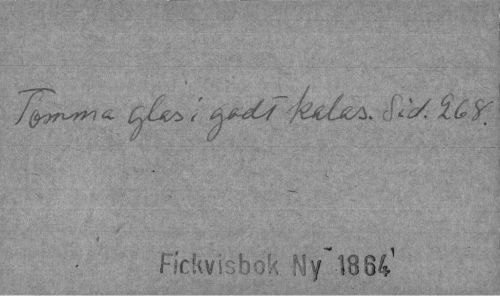 Tomma glas i godt kalas. Sid. 268.
Fickvisbok Ny 1864